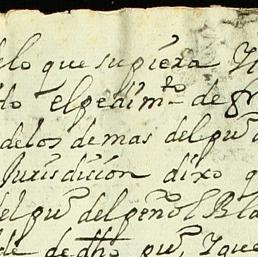 lo que supiera Y
do el pedim.to de fr
de los demas del pu.o
Jurisdiccion dixo q
del pu.o del peñol Bla
de dho pu.o Y que